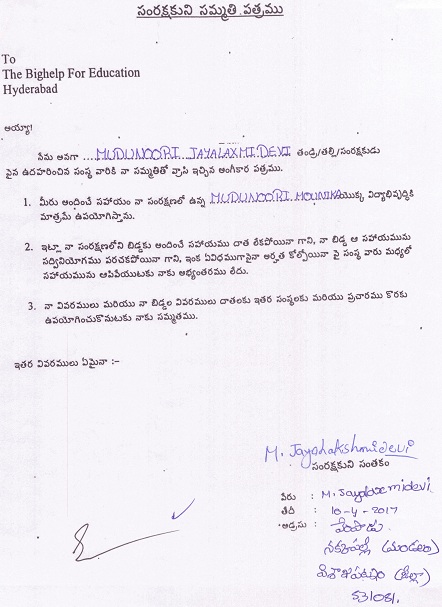 సంరక్షకుని సమ్మతి పత్రము
To
The Bighelp For Education
Hyderabad
అయ్యా!
నేను అనగా .... MUDUNOORI JAYALAXMI DEVI తండ్రి/తల్లి/సంరక్షకుడు
పైన ఉదహరించిన సంస్థ వారికి నా సమ్మతితో వ్రాసి ఇచ్చిన అంగీకార పత్రము.
1. మీరు అందించే సహాయం నా సంరక్షణలో ఉన్న MUDUNOORI MOUNIKA యొక్క విద్యాభివృద్ధికి
మాత్రమే ఉపయోగిస్తాను.
2. ఇట్లా నా సంరక్షణలోని బిడ్డకు అందించే సహాయము దాత లేకపోయినా గాని, నా బిడ్డ ఆ సహాయమును
సద్వినియోగము పరచకపోయినా గాని, ఇంక ఏవిధముగానైనా అర్హత కోల్పోయినా పై సంస్థ వారు మధ్యలో
సహాయమును ఆపివేయుటకు నాకు అభ్యంతరము లేదు.
3. నా వివరములు మరియు నా బిడ్డల వివరములు దాతలకు ఇతర సంస్థలకు మరియు ప్రచారము కొరకు
ఉపయోగించుకొనుటకు నాకు సమ్మతము.
ఇతర వివరములు ఏమైనా :-
M. Jayalakshmidevi
సంరక్షకుని సంతకం
పేరు : M. Jayalaxmidevi
తేదీ : 10-4-2017
అడ్రసు : వేంపాడు
నక్కపల్లి (మండలం)
విశాఖపట్నం (జిల్లా)
531081.